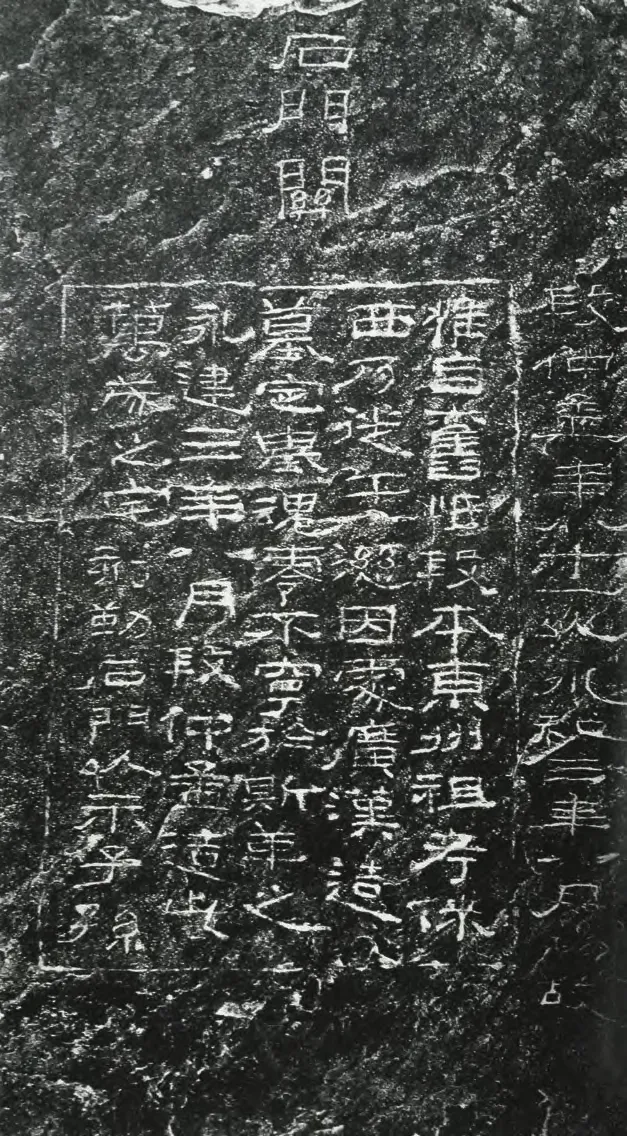 石門關
段仲孟年八十一以永和三年八月物故
惟自舊忯段本東州祖考徠
西乃徙于慈因家廣漢造
墓定基魂零不寧於斯革之
永建三年八月段仲孟造此
萬歲之宅刻勒石門以示子孫